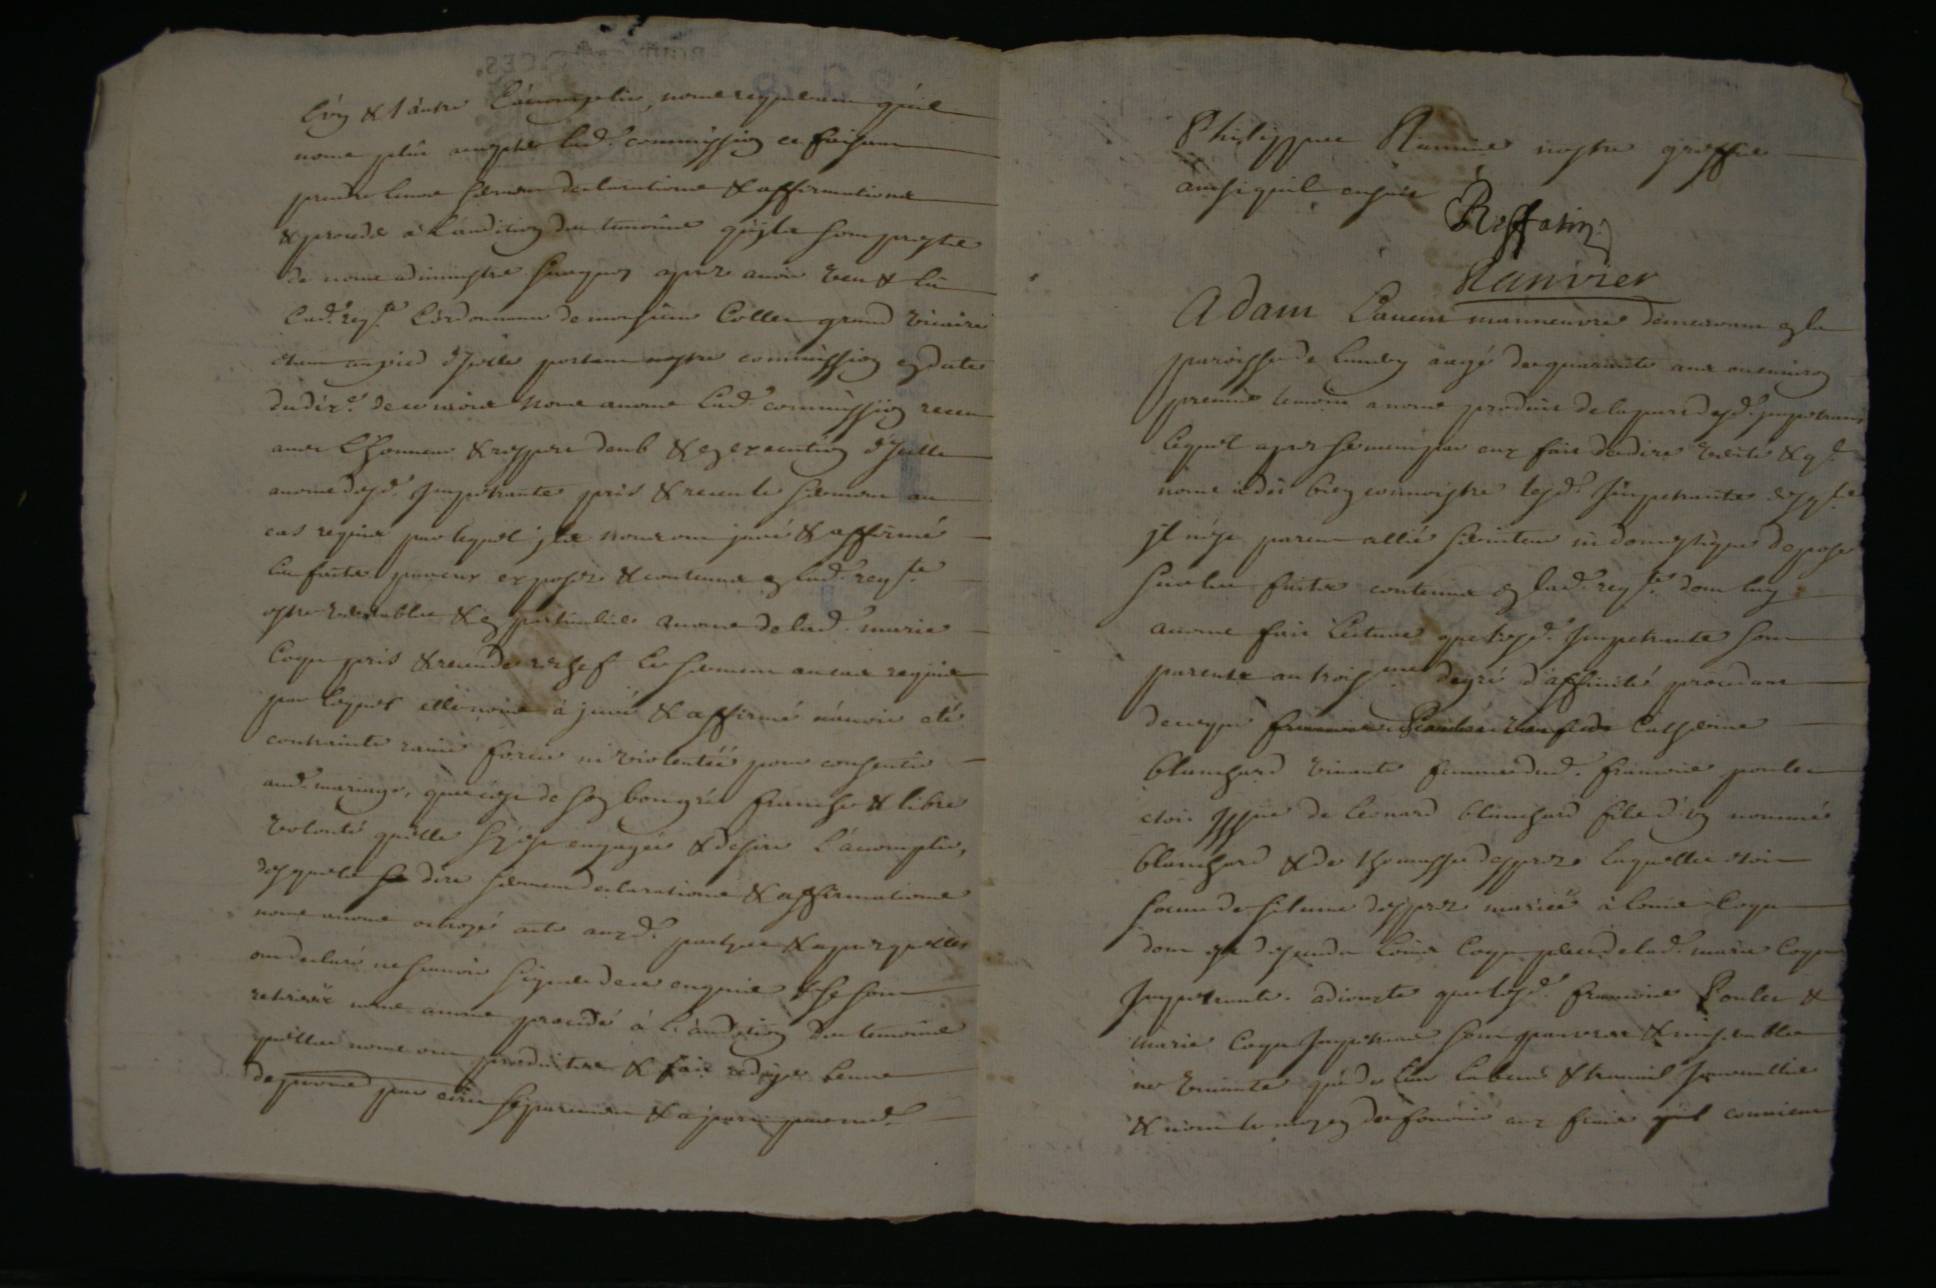 l'un & l'autre L'accomplir, nous requerans qu'il
nous plut accepter lad. commission ce faisant
prendre leurs serment declarations & affirmations
& proceder à L'audition des temoins qu'jls sont prests
de nous administrer surquoy apres avoir veu & lû
Lad. reqte. L'ordonnance de monsieur Collet grand vicaire
étant au pied d'jcelle portant nostre commission en date
du dixe. de ce mois Nous avons Lad. commission receu
avec L'honneur & respect deub & en execution d'jcelle
avons desd. Impetrants pris & receu le serment au
cas requis par lequel jls nous ont juré & affirmé
Les faits par eux exposés & contenus en Lad. reqte.
estre veritables & en particulier avons de lad. marie
Coqu pris & receu de rechef Le serment au cas requis
par lequel elle nous à juré & affirmé n'avoir été
contrainte ravie forcée ni violentée pour consentir
aud. mariage, que c'est de son bon gré franche & libre
volonté qu'elle s'y est engagée & desire L'accomplir,
desquels dire serment declarations & affirmations
nous avons octroyé acte auxd. parties & apres qu'elles
ont declaré ne sçavoir signer de ce enquis & se sont
retirés nous avons procedé à L'audition des temoins
qu'elles nous ont produits & fait rediger leurs
deposition par ecrit separement & a part par md.
Philippes Ranvier nostre greffier
ainsi qu'il ensuit
Ranvier
Adam manneuvre demeurant en la
paroisse de Lunery aagé de quarante ans ou environ
premier temoin a nous produit de la part desd. jmpetrans
lequel apres serment par eux fait de dire verité & qd.
nous à dit bien connoistre lesd. Jmpetrants
jl n'est parent allié serviteur ni domestique depose
sur les faits contenus en lad. reqte. dont luy
avons fait Lecture que lesd. Jmpetrants sont
parents au troisme. degré d'affinité procedant
de ce que Catherine
blanchard vivante femme dud. francois poulet
etoit Issuë de Leonard blanchard fils d'un nommé
blanchard & de thomasse desprez laquelle etoit
soeur de silvine desprez mariée à Louis Coqu
dont est descendu Louis Coqu pere de lad. marie Coqu
Jmpetrante. adiouste que lesd. francois Poulet &
marie Coqu Jmpetrans sont pauvres & miserables
ne vivants que de Leur Labeur & travail Journallier
& n'ont le moyen de fournir aux frais qu'il convient